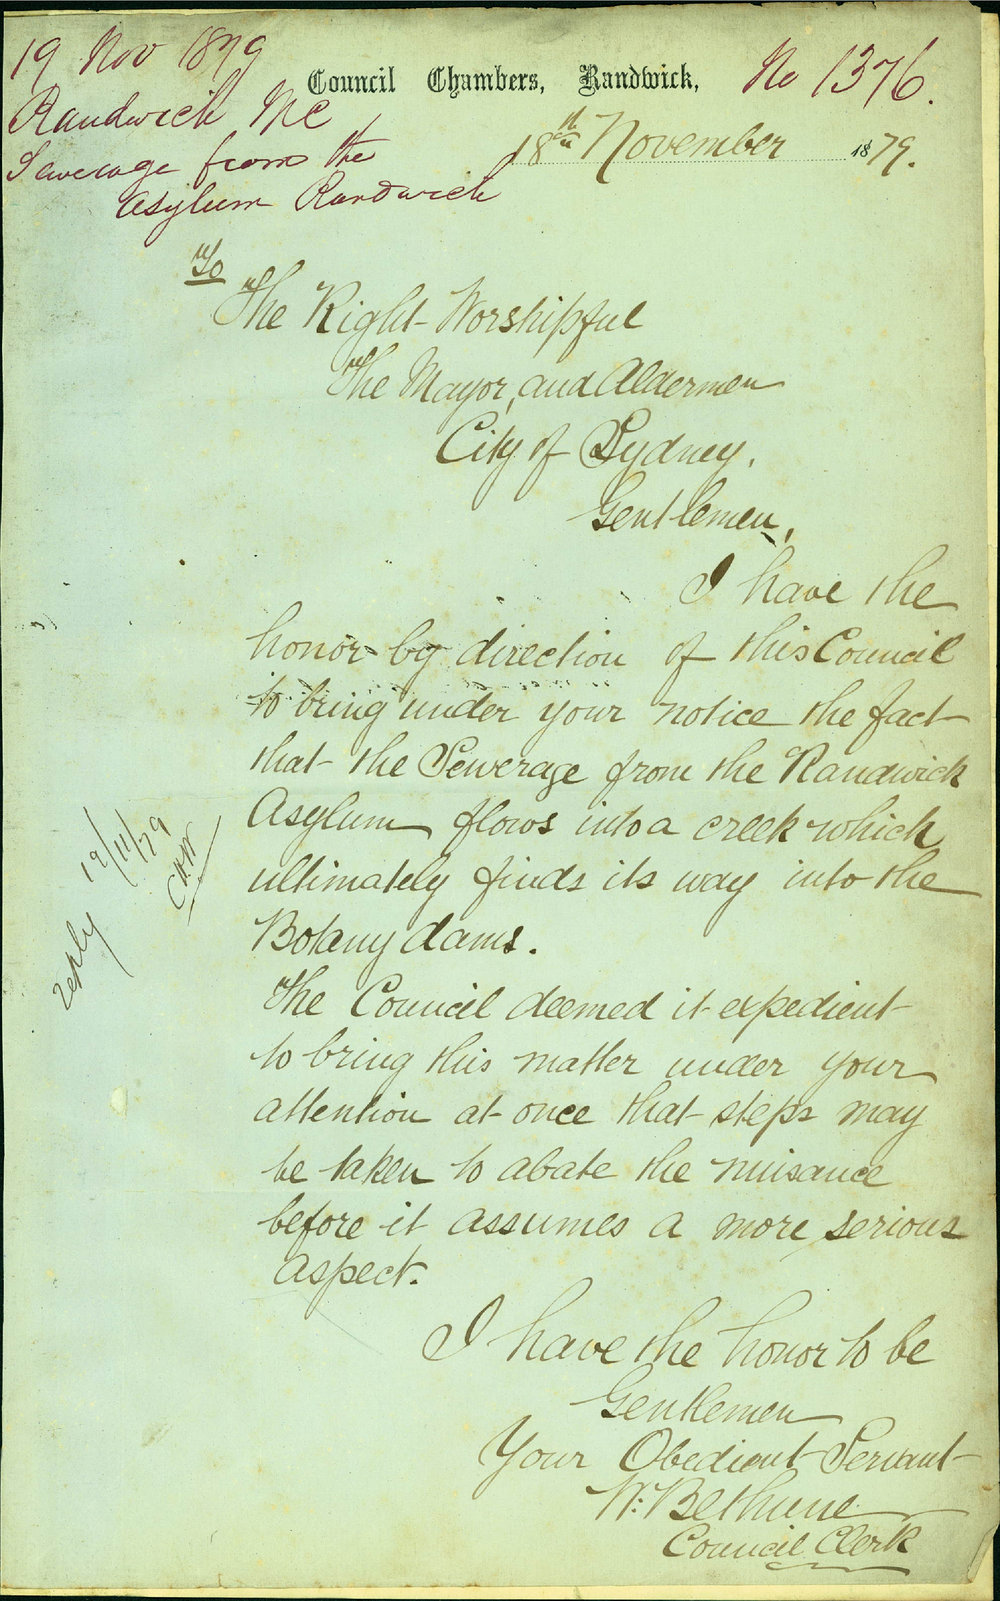 19 Nov 1879
Randwick MC
Sewerage from the
Asylum Randwick
Council Chambers, Randwick,
No 1376.
18th November 1879.
To
The Right Worshipful
The Mayor, and Aldermen
City of Sydney.
Gentlemen,
I have the
honor by direction of this Council
to bring under your notice the fact
that the Sewerage from the Randwick
Asylum flows into a creek which
ultimately finds its way into the
Botany dams.
The Council deemed it expedient
to bring this matter under your
attention at once that steps may
be taken to abate the nuisance
before it assumes a more serious
aspect.
I have the honor to be
Gentlemen
Your Obedient Servant
W: Bethune
Council Clerk
reply 19/11/79